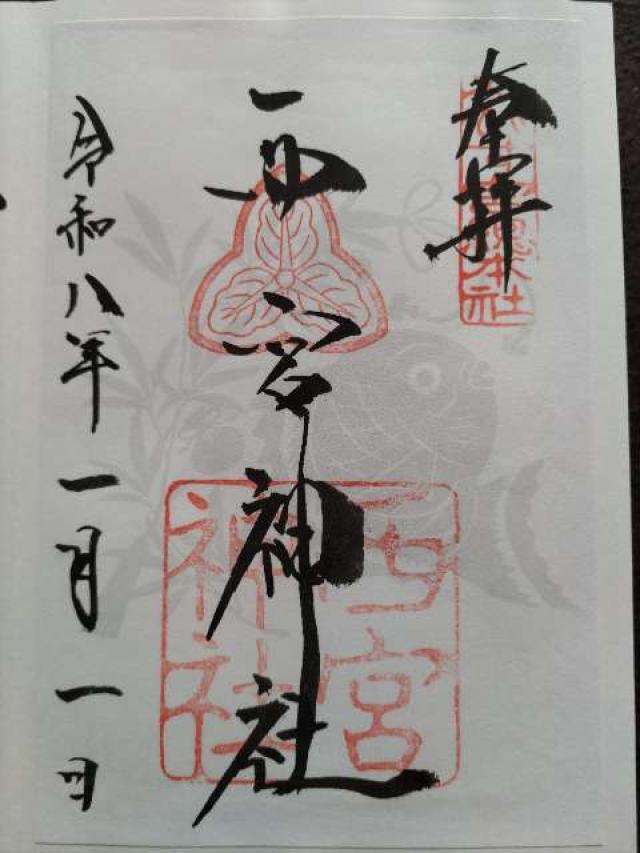 奉拝
西宮神社
西宮
神社
令和八年一月一日